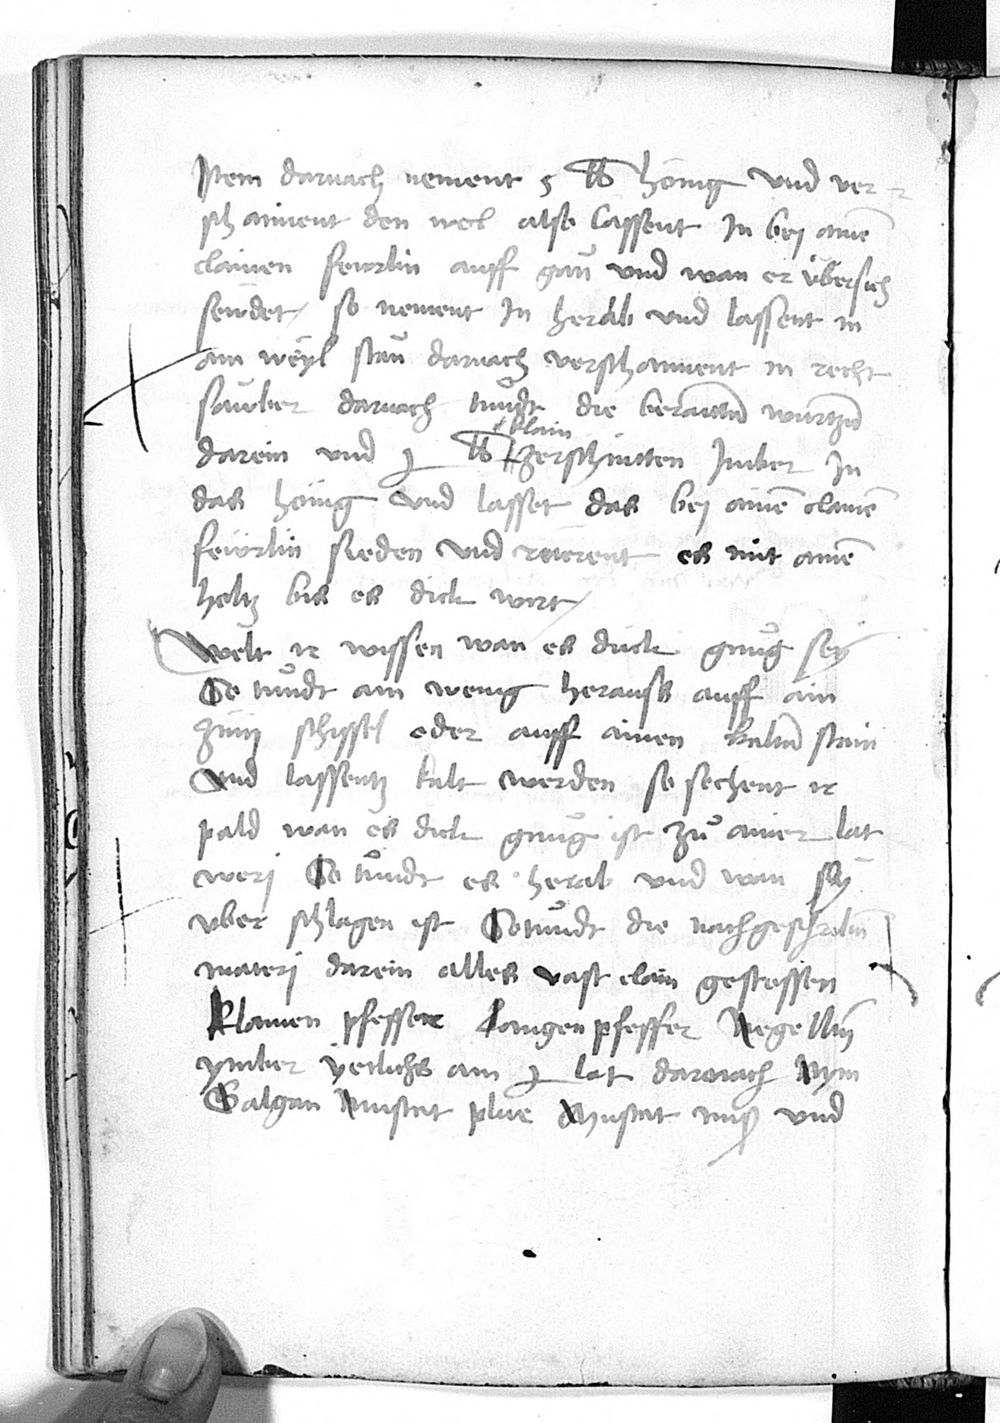 Item darnach nement 5 ℔ honig vnd ver-
schaiment den wol also lassent In bej aimē
clainen feẅrlin auff gan vnd wan er ẅbersich
seẅdet / so nement In herab vnd lassent in
ain weyl stan darnach verschaiment in recht
sauber darnach tuͦndt die beraittn̄ wurtzn̄
darein vnd j ℔ klain zerschnitten Imber In
das honig vnd lasset das bej aimē clainē
feẅrlin sieden vnd rierent es mit aimē
holtz bis es dick wirt /
Welt ir wissen wan es dick gnuͦg sey
So tuͦndt ain wenig herauss auff ain
Zinij schissel oder auff ainen kaltn̄ stain
Vnd lassentz kalt werden so sechent ir
pald wan es dick gnuͦg ist Zuͦ ainer lat
werj So tuͦndt es herab vnd wan sy
vber schlagen ist So tuͦndt die nachgeschribn̄
materj darein alles vast clain gestossen
Klainen pfeffer Langen pfeffer Negellin
ymber yetlichs ain j lot darnach Nym
Galgan Mustat plue Mustat nusz vnd